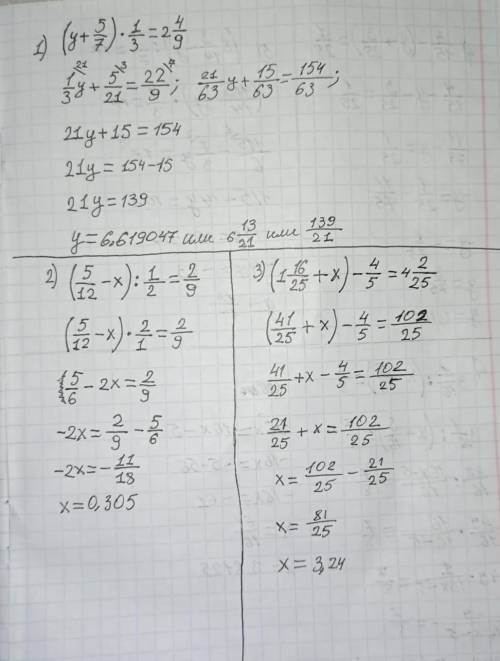 1) (y + 5/7) · 1/3 = 2 4/9
1/3 y + 5/21 = 22/9; 21/63 y + 15/63 = 154/63;
21y + 15 = 154
21y = 154 - 15
21y = 139
y = 6,619047 или 6 13/21 или 139/21
2) (5/12 - x) : 1/2 = 2/9
(5/12 - x) · 2/1 = 2/9
5/6 - 2x = 2/9
-2x = 2/9 - 5/6
-2x = - 11/18
x = 0,305
3) (1 16/25 + x) - 4/5 = 4 2/25
(41/25 + x) - 4/5 = 102/25
41/25 + x - 4/5 = 102/25
21/25 + x = 102/25
x = 102/25 - 21/25
x = 81/25
x = 3,24